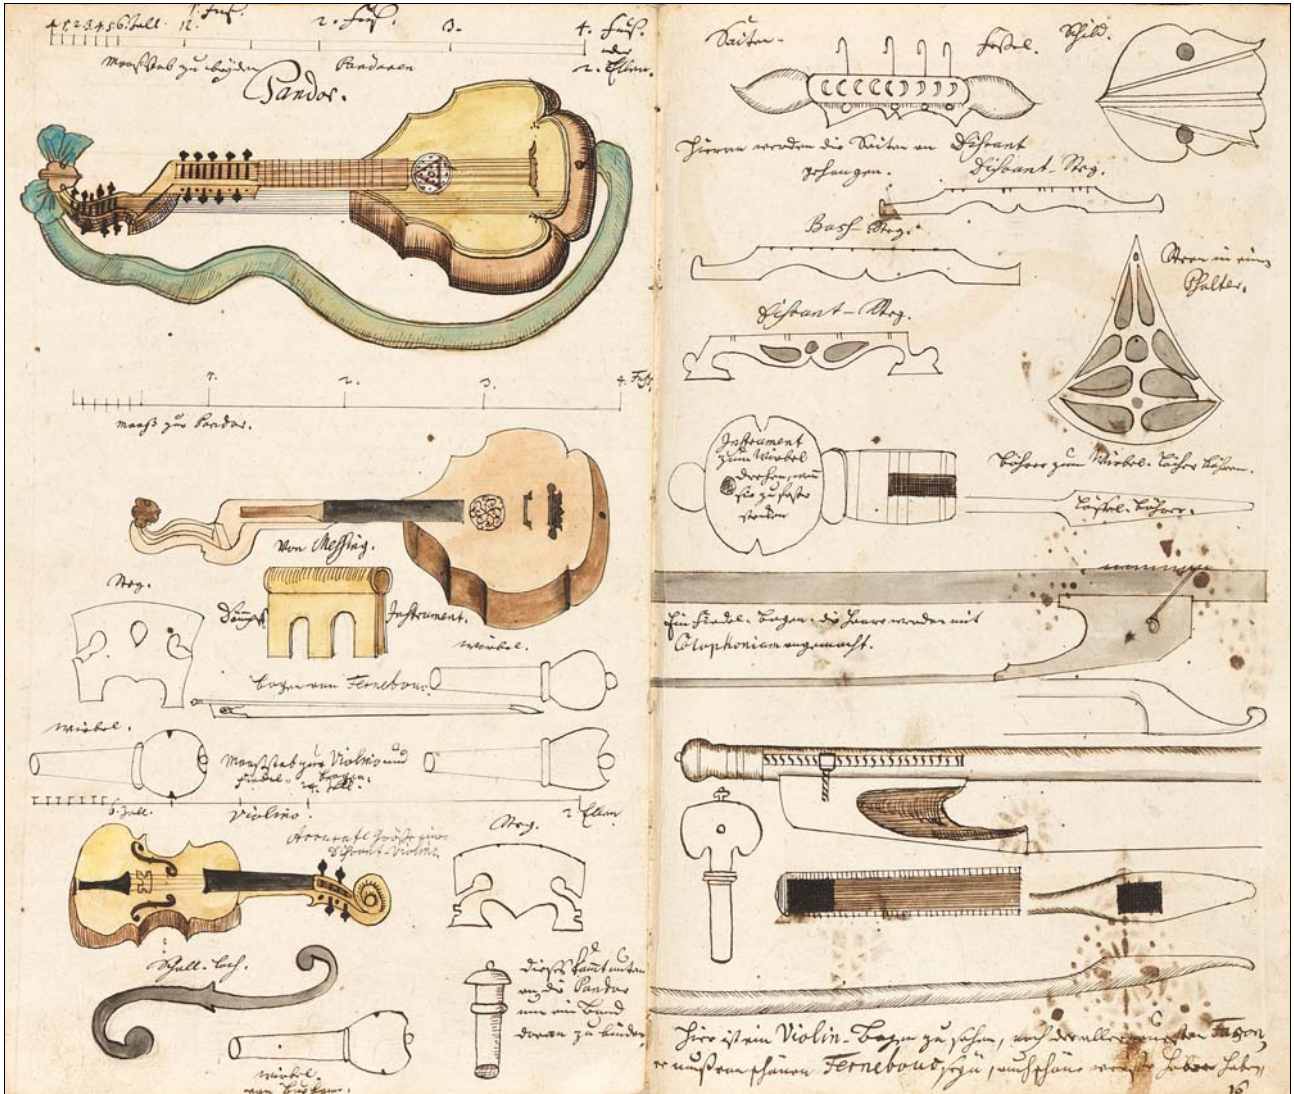 1. Fuß.
1. 2. 3. 4. 5. 6. Zoll. 12. 2. Fuß. 3. 4. Fuß.
oder
2. Ellen.
Maaßstab zu beyden Pandoren
Pandor.
1. 2. 3. 4. Fuß
maaß zur Pandor.
Von Messing.
Steg.
Dämpf Instrument.
Wirbel.
bogen von Fernebouc
Wirbel.
Maaßstab zur Violino und
Fiedel-bogen.
24. Zoll.
6. Zoll. Violino. 2 Ellen
Größe einer
Discant-Violin.
Steg.
Schall-loch.
Wirbel.
von
dieses kömt unten
an die Pandor
um ein Band
daran zu binden
Saiten. Sattel. Schild.
Hieran werden die Saiten am Discant
gehangen. Discant-Steg.
Baß-Steg.
Stern in einem
Psalter.
Discant-Steg.
Instrument
zum Wirbel
drehen, wenn
sie zu feste
stecken
Bohrer zum Wirbel-löcher bohren.
Löffel-bohrer.
Ein Fiedel-bogen. die Haare werden mit
Colophonium angemacht.
Hier ist ein Violin-Bogen zu sehen, nach der allerneuesten Façon,
er muß von schönen Fernebouc seyn, auch schöne weiße Haare haben
16